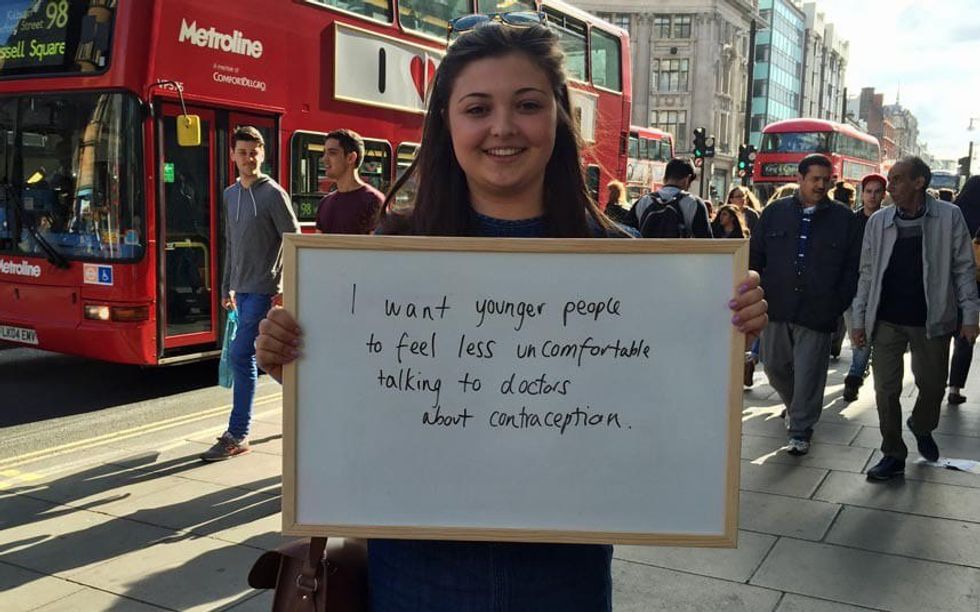 98
ssell Square
Metroline
A member of
COMFORTDELGRO
VP575
I
98
Metroline
LK04 EMV
I want younger people
to feel less uncomfortable
talking to doctors
about contraception.